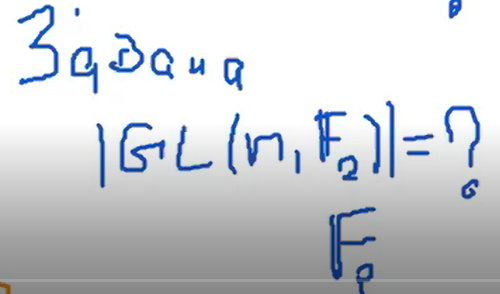 Задача
|GL(n, 𝔽₂)| = ?
𝔽ₚ